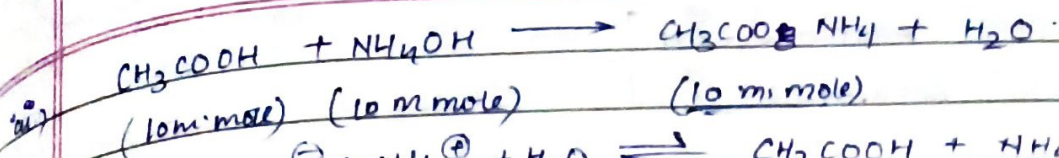 CH3COOH + NH4OH ⟶ CH3COO NH4 + H2O
(10 m.mole) (10 m mole) (10 m. mole)
⊕ + H2O ⇌ CH3COOH +